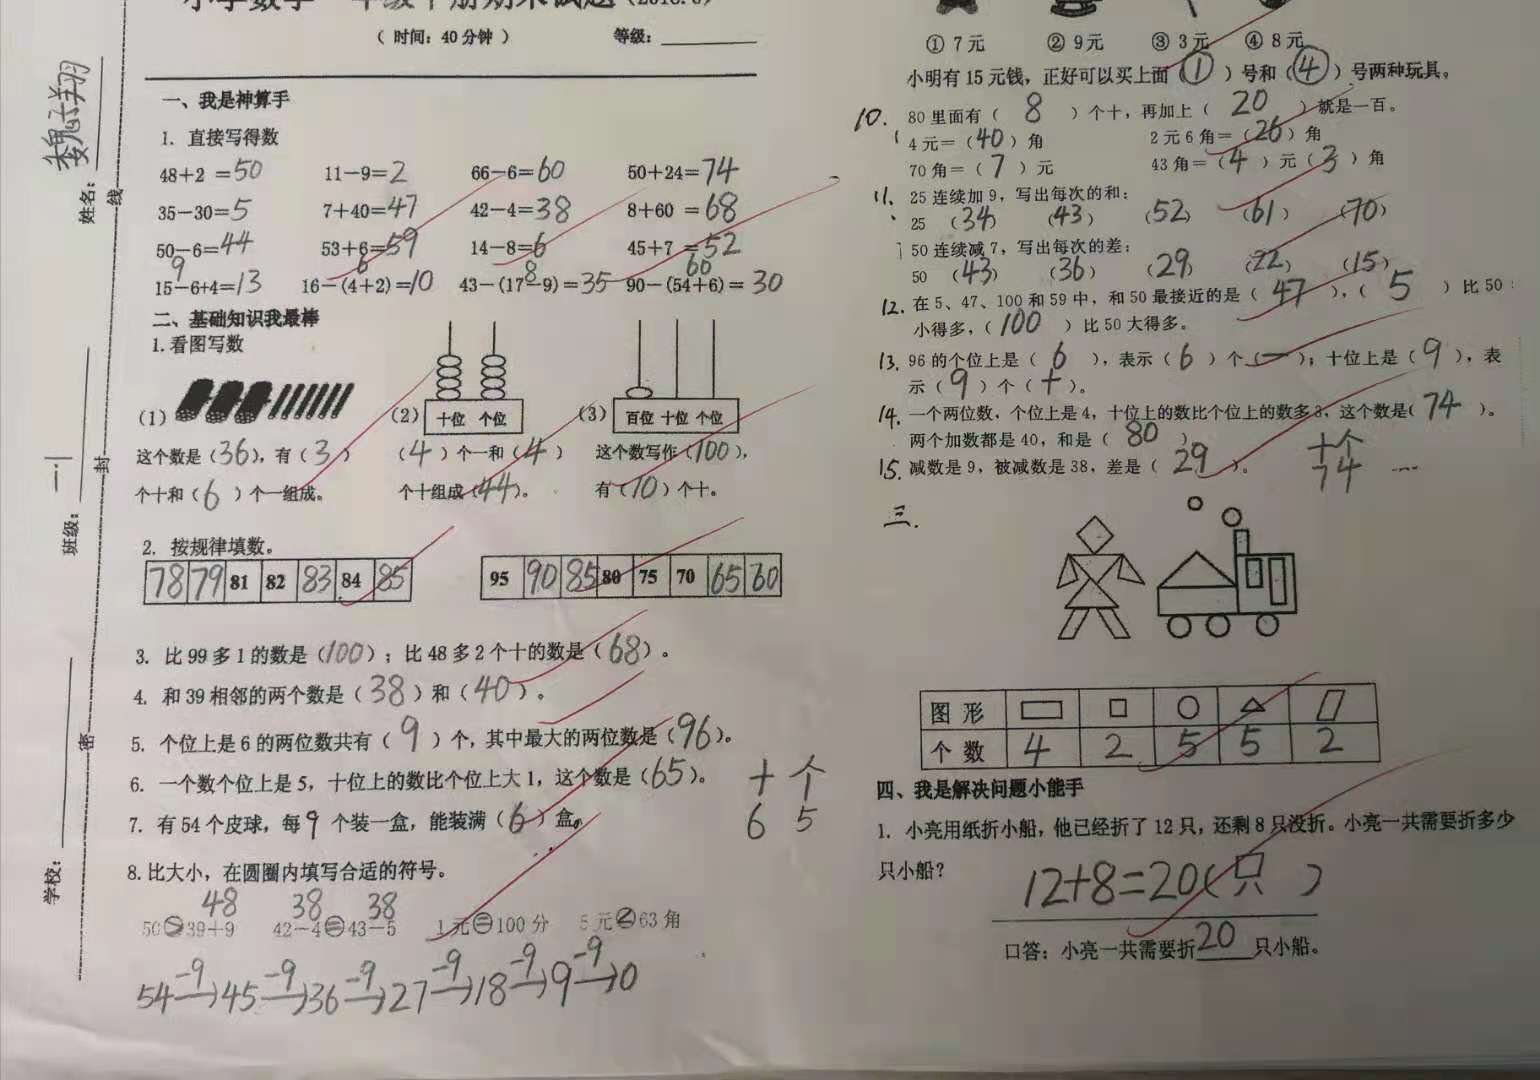 （时间：40分钟） 等级：
魏子翔
姓名：
班级：
一.1
学校：
线
封
密
一、我是神算手
1. 直接写得数
48+2 =50 11-9=2 66-6=60 50+24=74
35-30=5 7+40=47 42-4=38 8+60 =68
50-6=44 53+6=59 14-8=6 45+7 =52
9 6 8 60
15-6+4=13 16-(4+2)=10 43-(17-9)=35 90-(54+6)=30
二、基础知识我最棒
1.看图写数
（1） （2） 十位 个位 （3） 百位 十位 个位
这个数是（36），有（3） （4）个一和（4） 这个数写作（100），
个十和（6）个一组成。 个十组成（44）。 有（10）个十。
2. 按规律填数。
78 79 81 82 83 84 85 95 90 85 80 75 70 65 60
3. 比99多1的数是（100）；比48多2个十的数是（68）。
4. 和39相邻的两个数是（38）和（40）。
5. 个位上是6的两位数共有（9）个，其中最大的两位数是（96）。
6. 一个数个位上是5，十位上的数比个位上大1，这个数是（65）。
十个
65
7. 有54个皮球，每9个装一盒，能装满（6）盒。
8.比大小，在圆圈内填写合适的符号。
48 38 38
50>39+9 42-4=43-5 1元=100分 5元<63角
54 -9→ 45 -9→ 36 -9→ 27 -9→ 18 -9→ 9 -9→ 0
①7元 ②9元 ③3元 ④8元
小明有15元钱，正好可以买上面（1）号和（4）号两种玩具。
10. 80里面有（8）个十，再加上（20）就是一百。
4元=（40）角 2元6角=（26）角
70角=（7）元 43角=（4）元（3）角
11. 25连续加9，写出每次的和：
25 （34） （43） （52） （61） （70）
50连续减7，写出每次的差：
50 （43） （36） （29） （22） （15）
12. 在5、47、100和59中，和50最接近的是（47），（5）比50
小得多，（100）比50大得多。
13. 96的个位上是（6），表示（6）个（一）；十位上是（9），表
示（9）个（十）。
14. 一个两位数，个位上是4，十位上的数比个位上的数多3，这个数是（74）。
两个加数都是40，和是（80）
十个
74
15. 减数是9，被减数是38，差是（29）。
三.
图形
个数 4 2 5 5 2
四、我是解决问题小能手
1. 小亮用纸折小船，他已经折了12只，还剩8只没折。小亮一共需要折多少
只小船？
12+8=20（只）
口答：小亮一共需要折20只小船。